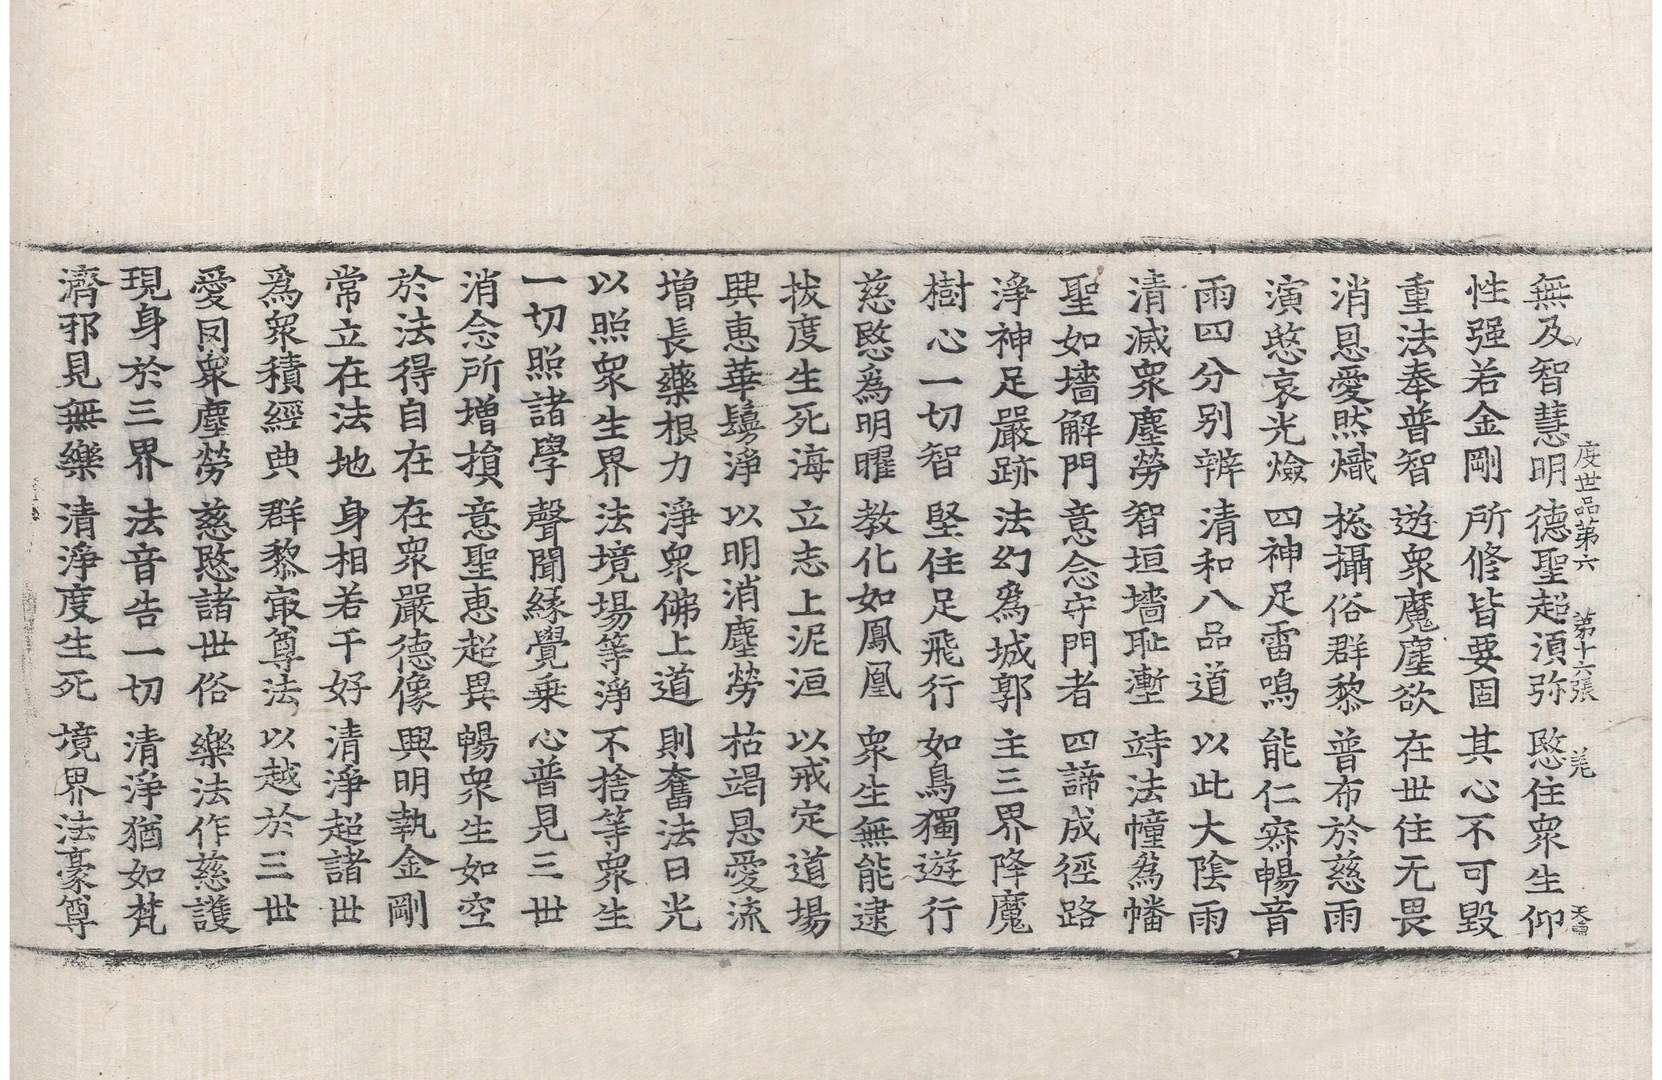 度世品第六 第十六張 羌
無及智慧明 德聖超湏弥 愍住衆生仰
性强若金剛 所修皆要固 其心不可毀
重法奉普智 遊衆魔塵欲 在世住无畏
消恩愛然熾 捴攝俗群黎 普布於慈雨
演愍哀光燄 四神足雷鳴 能仁寂暢音
雨四分别辨 清和八品道 以此大陰雨
清滅衆塵勞 智垣墻耻塹 跱法幢爲幡
聖如墻解門 意念守門者 四諦成徑路
淨神足嚴跡 法幻爲城郭 主三界降魔
樹心一切智 堅住足飛行 如鳥獨遊行
慈愍爲明曜 教化如鳳凰 衆生無能逮
拔度生死海 立志上泥洹 以戒定道場
興惠華鬘淨 以明消塵勞 枯竭恩愛流
增長藥根力 淨衆佛上道 則奮法日光
以照衆生界 法境場等淨 不捨等衆生
一切照諸學 聲聞緣覺乗 心普見三世
消念所增損 意聖惠超異 暢衆生如空
於法得自在 在衆嚴德像 興明執金剛
常立在法地 身相若干好 清淨超諸世
爲衆積經典 群黎㝡尊法 以越於三世
愛同衆塵勞 慈愍諸世俗 樂法作慈護
現身於三界 法音告一切 清淨猶如梵
濟邪見無樂 清淨度生死 境界法豪尊